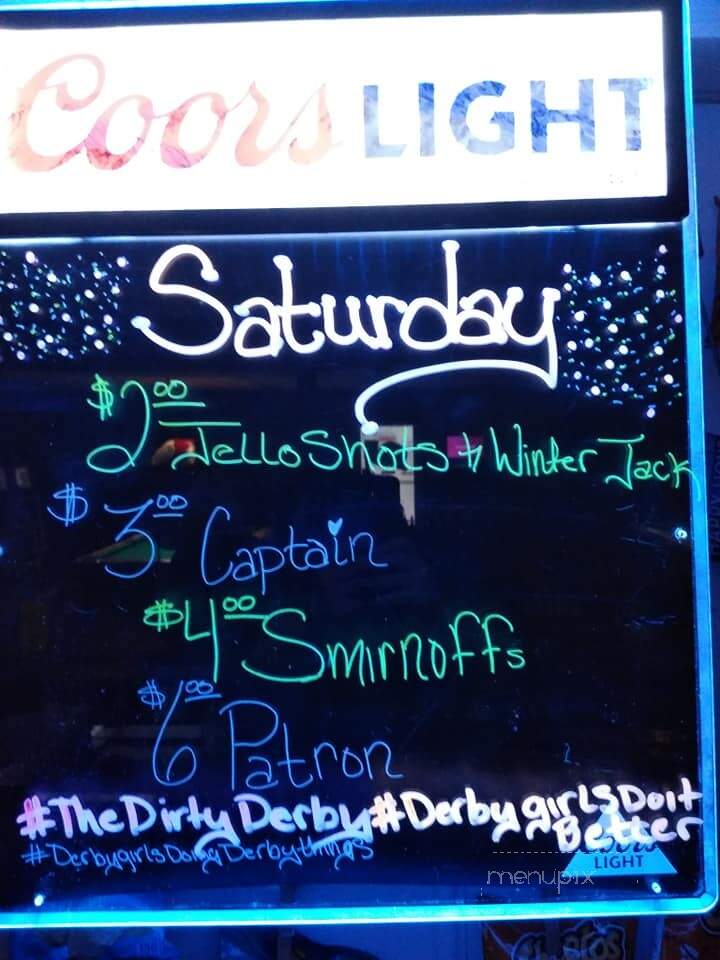 Coors LIGHT
Saturday
$2.00 Jello Shots & Winter Jack
$3.00 Captain
$4.00 Smirnoffs
$6.00 Patron
#TheDirtyDerby #DerbygirlsDoit
Better
#DerbygirlsDoingDerbythings
Coors
LIGHT
menupix